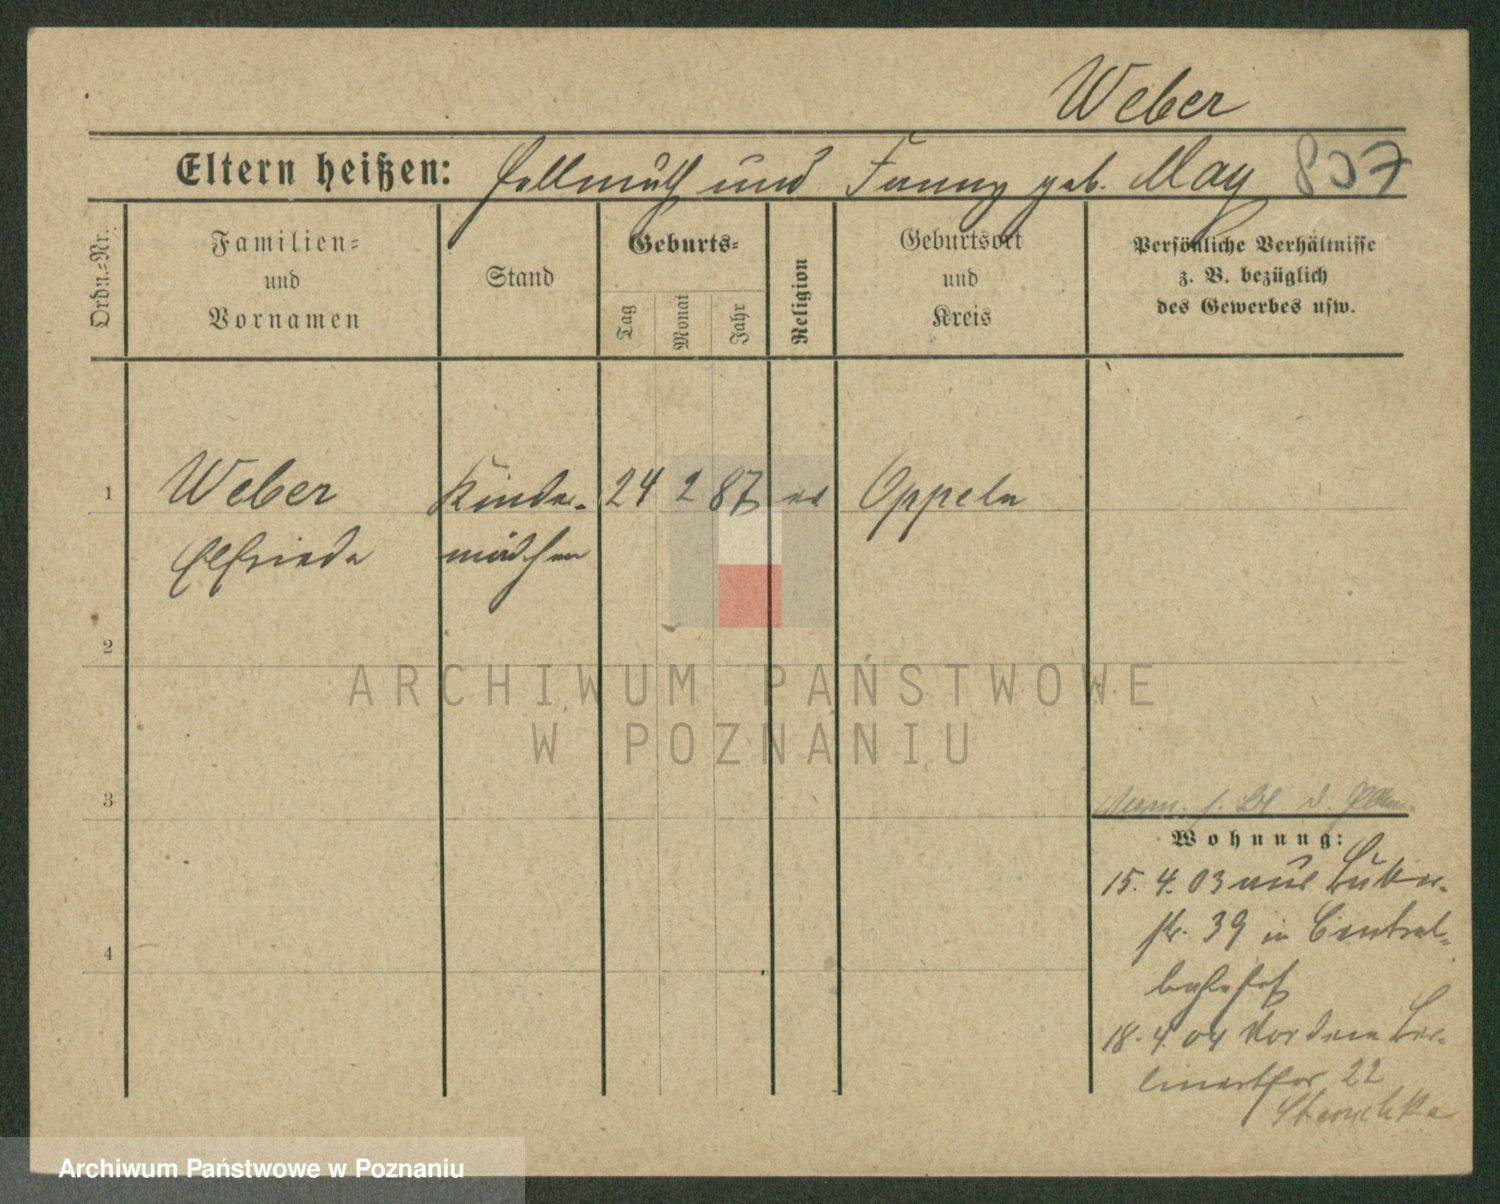 Weber
Eltern heißen: Hellmuth und Fanny geb. May 837
Ordn.-Nr.
Familien-
und
Vornamen
Stand
Geburts-
Tag
Monat
Jahr
Religion
Geburtsort
und
Kreis
Persönliche Verhältnisse
z. B. bezüglich
des Gewerbes usw.
1 Weber Kinder- 24 2 87 ev Oppeln
Elfriede mädchen
2
ARCHIWUM PAŃSTWOWE
W POZNANIU
3
Wohnung:
15. 4. 03 aus
str. 39 in Central-
bahnhof
4
18. 4 04 Vor dem Ber-
linerthor 22
Archiwum Państwowe w Poznaniu